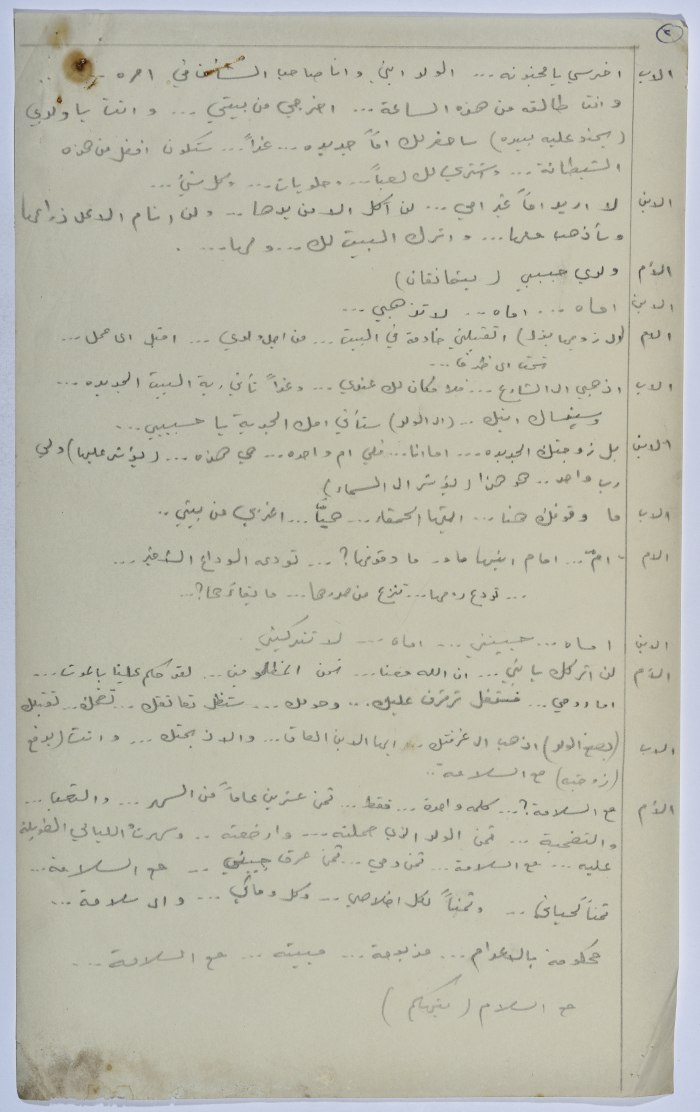 ٢
الاب اخرسي يا مجنونه ... الولد ابني وانا صاحب الشأن في امره ...
وانت طالقه من هذه الساعة ... اخرجي من بيتي ... وانت يا ولدي
(يحنو عليه بيده) سأحضر لك اماً جديده ... غداً ... ستكون افضل من هذه
الشيطانة ... وستشتري لك لعباً ... وحلويات ... وكل شيء ...
الابن لا اريد اماً غير امي ... لن آكل الا من يدها ... ولن انام الا على ذراعها
وسأذهب معها ... واترك البيت لك ... ومعها ...
الأم ولدي حبيبي (يتعانقان)
الابن اماه ... اماه ... لا تذهبي ...
الام (الى زوجها بذل) اتقبلني خادمة في البيت ... من اجل ولدي ... اقبل اي عمل ...
الاب اذهبي الى الشارع ... فلا مكان لك عندي ... وغداً تأتي ربة البيت الجديده ...
وسينساك ابنك ... (الى الولد) ستأتي امك الجديدة يا حبيبي ...
الابن بل زوجتك الجديده ... اما انا ... فلي ام واحده ... هي هذه ... (يؤشر عليها) ولي
رب واحد .. هو هذا (يؤشر الى السماء)
الاب ما وقوفك هنا ... ايتها الحمقاء ... هيّا ... اخرجي من بيتي ..
الام أم ... امام ابنها ما وقوفها؟ ... تودعه الوداع الاخير ...
... تودع روحها ... تنزع من صدرها ... ما بقاءها؟ ..
الابن اماه ... حبيبتي ... اماه ... لا تتركيني
الأم لن اتركك يا بني ... ان الله معنا ... نحن المظلومين ... لقد حكم علينا بالموت ...
اما روحي ... فستظل ترفرف عليك ... وحولك ... ستظل تعانقك .. تضمك .. تقبلك
الاب (يصفع الولد) اذهب الى غرفتك ... ايها الابن العاق ... والا ذبحتك ... وانت (يدفع
زوجته) مع السلامة ..
الأم مع السلامة؟ ... كلمه واحدة ... فقط ... ثمن عشرين عاماً من السهر ... والتعب ...
والتضحية ... ثمن الولد الذي حملته ... وارضعته .. وسهرت الليالي الطويلة
عليه ... مع السلامة ... ثمن دمي ... ثمن عرق جبيني ... مع السلامة ...
ثمناً لحياتي ... وثمناً لكل اخلاصي ... وكل وفائي ... والسلامة ...
محكومة بالاعدام ... مذبوحة ... ميتة ... مع السلامة ...
مع السلام ( )